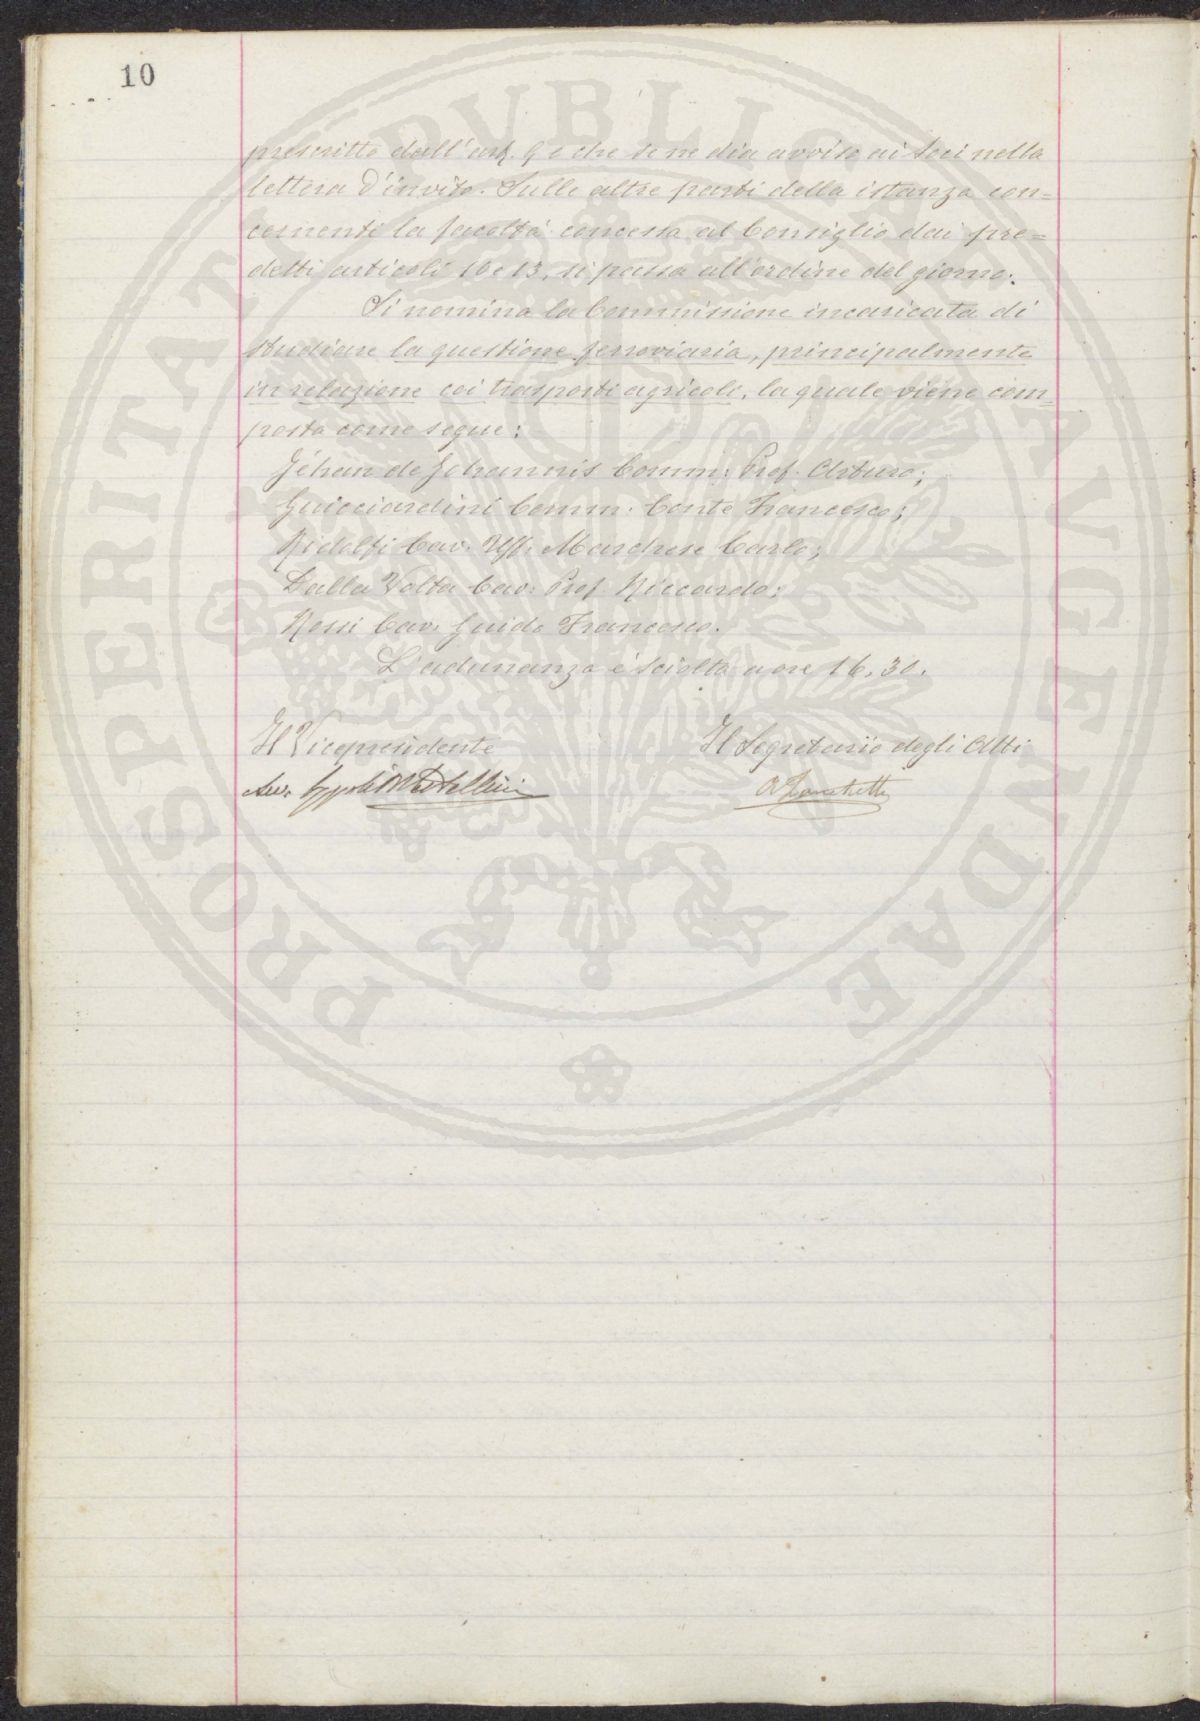 10
prescritto dall'art. 9 e che se ne dia avviso ai Soci nella
lettera d'invito. Sulle altre parti della istanza con=
cernenti la facoltà concessa al Consiglio dai pre=
detti articoli 10 e 13, si passa all'ordine del giorno.
Si nomina la Commissione incaricata di
studiare la questione ferroviaria, principalmente
in relazione coi trasporti agricoli, la quale viene com=
posta come segue:
Jéhan de Johannis Comm: Prof. Arturo;
Guicciardini Comm. Conte Francesco;
Ridolfi Cav. Uff. Marchese Carlo;
Dalla Volta Cav. Prof. Riccardo;
Rossi Cav. Guido Francesco.
L'adunanza è sciolta a ore 16,30.
Il Vicepresidente
Il Segretario degli Atti
Avv.
PROSPERITATI PVBLICAE AVGENDAE